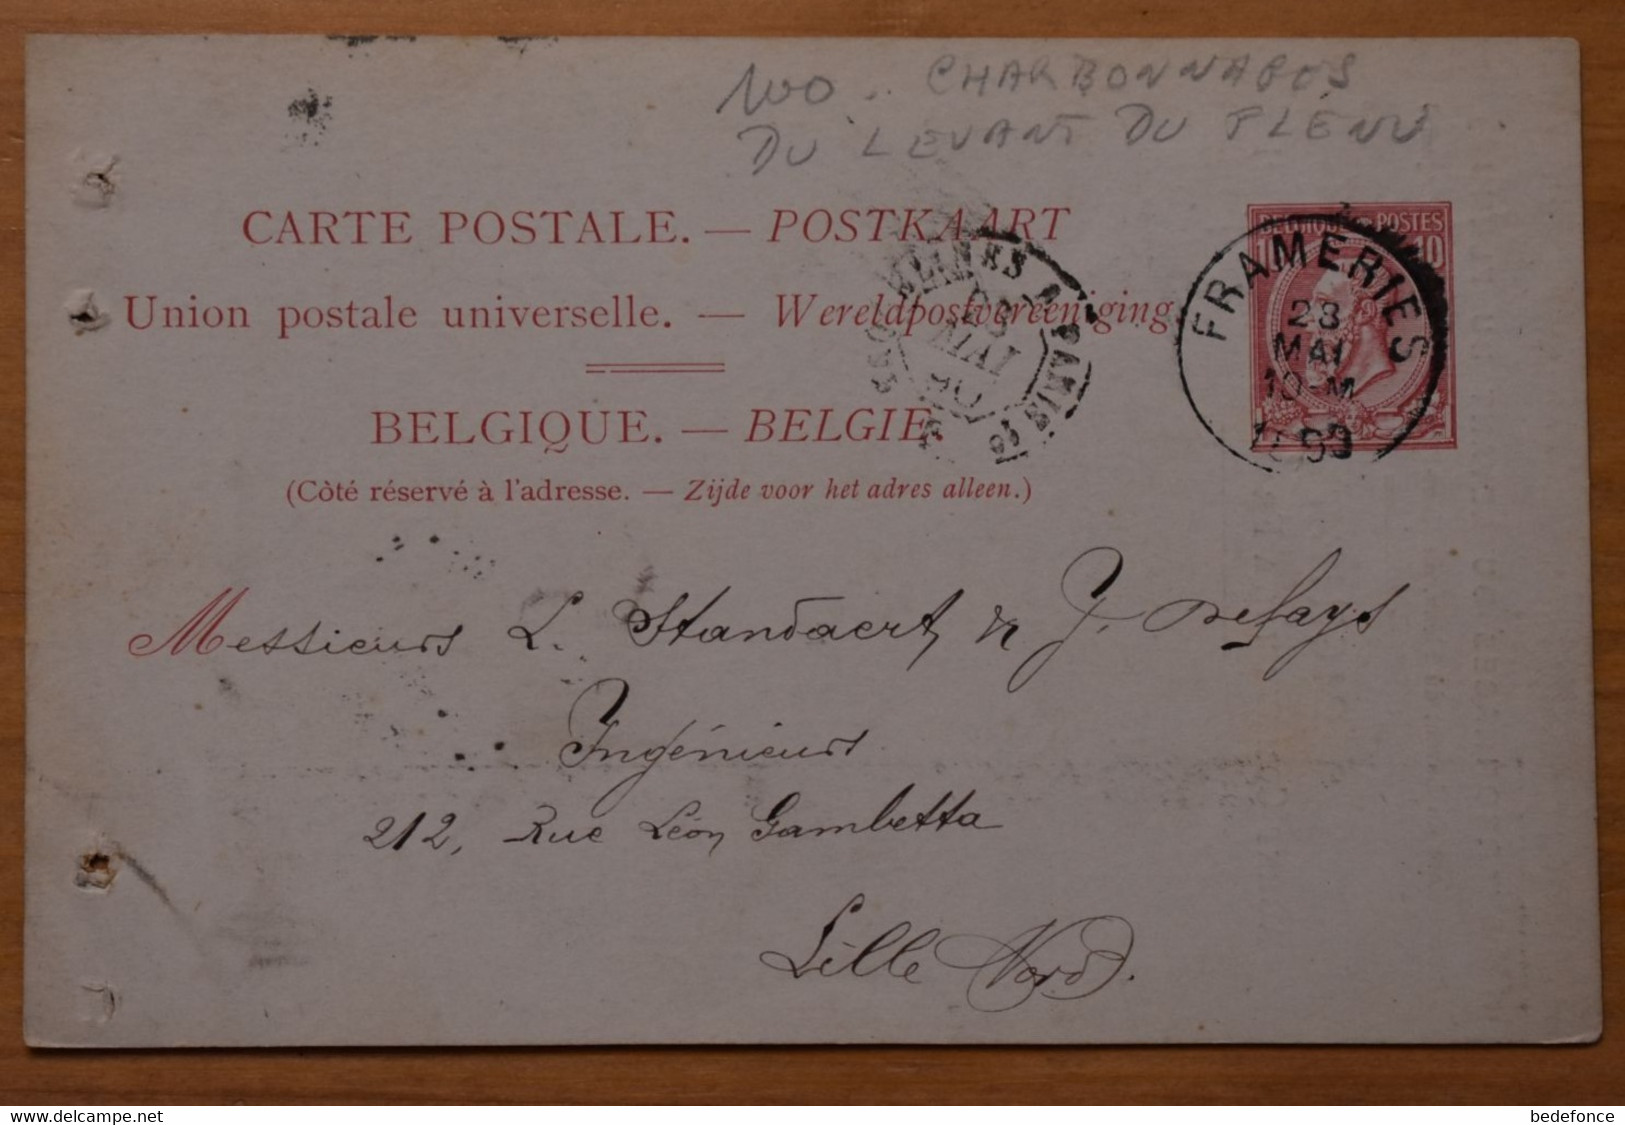 100.. CHARBONNAGES
DU LEVANT DU FLENU
CARTE POSTALE. — POSTKAART
Union postale universelle. — Wereldpostvereeniging
BELGIQUE. — BELGIE.
(Côté réservé à l'adresse. — Zijde voor het adres alleen.)
BELGIQUE POSTES
10 10
FRAMERIES
23
MAI
10-M
1890
A PARIS
MAI
90
Messieurs L. Standaert & J. Defays
Ingénieurs
212, Rue Léon Gambetta
Lille Nord.
www.delcampe.net
bedefonce